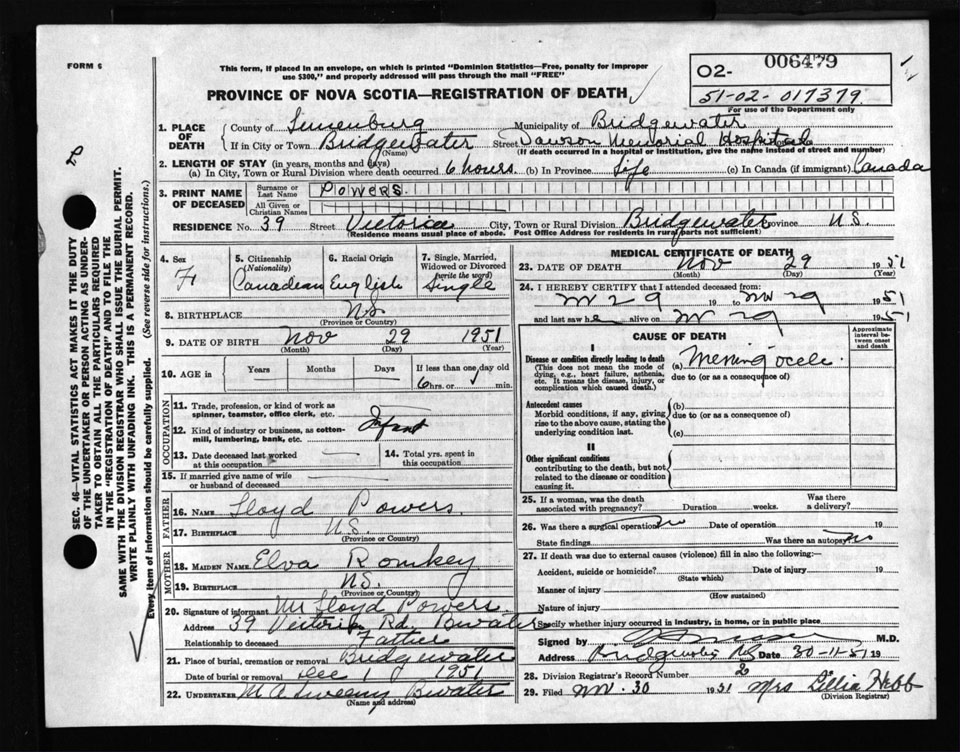 FORM 6
This form, if placed in an envelope, on which is printed "Dominion Statistics—Free, penalty for improper
use $300," and properly addressed will pass through the mail "FREE"
PROVINCE OF NOVA SCOTIA—REGISTRATION OF DEATH
02- 006479
51-02-017379
For use of the Department only
1. PLACE OF DEATH
County of Lunenburg Municipality of Bridgewater
If in City or Town Bridgewater Street Dawson Memorial Hospital
(Name) (If death occurred in a hospital or institution, give the name instead of street and number)
2. LENGTH OF STAY (in years, months and days)
(a) In City, Town or Rural Division where death occurred 6 hours. (b) In Province Life (c) In Canada (if immigrant) Canada
3. PRINT NAME OF DECEASED
Surname or Last Name Powers.
All Given or Christian Names
RESIDENCE No. 39 Street Victoria City, Town or Rural Division Bridgewater Province N.S.
(Residence means usual place of abode. Post Office Address for residents in rural parts not sufficient)
4. Sex F
5. Citizenship (Nationality) Canadian
6. Racial Origin English
7. Single, Married, Widowed or Divorced (write the word) Single
8. BIRTHPLACE N.S.
(Province or Country)
9. DATE OF BIRTH Nov 29 1951
(Month) (Day) (Year)
10. AGE in Years Months Days If less than one day old
6 hrs. or min.
OCCUPATION
11. Trade, profession, or kind of work as spinner, teamster, office clerk, etc.
12. Kind of industry or business, as cotton-mill, lumbering, bank, etc. Infant
13. Date deceased last worked at this occupation
14. Total yrs. spent in this occupation
15. If married give name of wife or husband of deceased
FATHER
16. NAME Lloyd Powers.
17. BIRTHPLACE N.S.
(Province or Country)
MOTHER
18. MAIDEN NAME Elva Romkey
19. BIRTHPLACE N.S.
(Province or Country)
20. Signature of informant Mr Lloyd Powers.
Address 39 Victoria Rd. Bwater
Relationship to deceased Father
21. Place of burial, cremation or removal Bridgewater
Date of burial or removal Dec 1 1951
22. UNDERTAKER M A Sweeny Bwater
(Name and address)
MEDICAL CERTIFICATE OF DEATH
23. DATE OF DEATH Nov 29 1951
(Month) (Day) (Year)
24. I HEREBY CERTIFY that I attended deceased from:
N 29 19 to Nov 29 1951
and last saw h alive on N 29 1951
CAUSE OF DEATH
Approximate interval between onset and death
I
Disease or condition directly leading to death
(This does not mean the mode of dying, e.g., heart failure, asthenia, etc. It means the disease, injury, or complication which caused death.)
(a) Meningocele.
due to (or as a consequence of)
Antecedent causes
Morbid conditions, if any, giving rise to the above cause, stating the underlying condition last.
(b)
due to (or as a consequence of)
(c)
II
Other significant conditions
contributing to the death, but not related to the disease or condition causing it.
25. If a woman, was the death associated with pregnancy? Duration weeks. Was there a delivery?
26. Was there a surgical operation? no Date of operation 19
State findings Was there an autopsy? no
27. If death was due to external causes (violence) fill in also the following:—
Accident, suicide or homicide? Date of injury 19
(State which)
Manner of injury
(How sustained)
Nature of injury
Specify whether injury occurred in industry, in home, or in public place
Signed by M.D.
Address Bridgewater NS Date 30-11-51 19
28. Division Registrar's Record Number 2
29. Filed Nov. 30 1951 Mrs Lillia Hebb
(Division Registrar)
SEC. 46—VITAL STATISTICS ACT MAKES IT THE DUTY
OF THE UNDERTAKER OR PERSON ACTING AS UNDER-
TAKER TO OBTAIN ALL THE PARTICULARS REQUIRED
IN THE "REGISTRATION OF DEATH" AND TO FILE THE
SAME WITH THE DIVISION REGISTRAR WHO SHALL ISSUE THE BURIAL PERMIT.
WRITE PLAINLY WITH UNFADING INK. THIS IS A PERMANENT RECORD.
Every item of information should be carefully supplied. (See reverse side for instructions.)